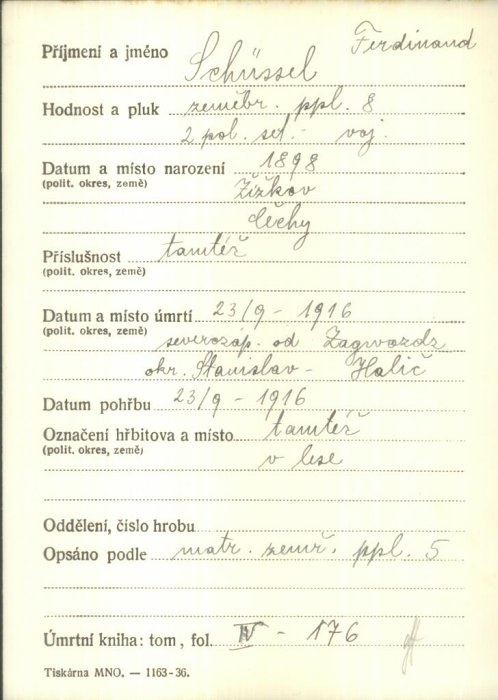 Příjmení a jméno Schüssel Ferdinand
Hodnost a pluk zeměbr. ppl. 8
2 pol. set. - voj.
Datum a místo narození 1898
(polit. okres, země) Žižkov
Čechy
Příslušnost tamtéž
(polit. okres, země)
Datum a místo úmrtí 23/9 - 1916
(polit. okres, země) severozáp. od Zagwozdz
okr. Stanislav - Halič
Datum pohřbu 23/9 - 1916
Označení hřbitova a místo tamtéž
(polit. okres, země) v lese
Oddělení, číslo hrobu
Opsáno podle matr. zemř. ppl. 5
Úmrtní kniha: tom, fol. IV - 176
Tiskárna MNO. — 1163-36.